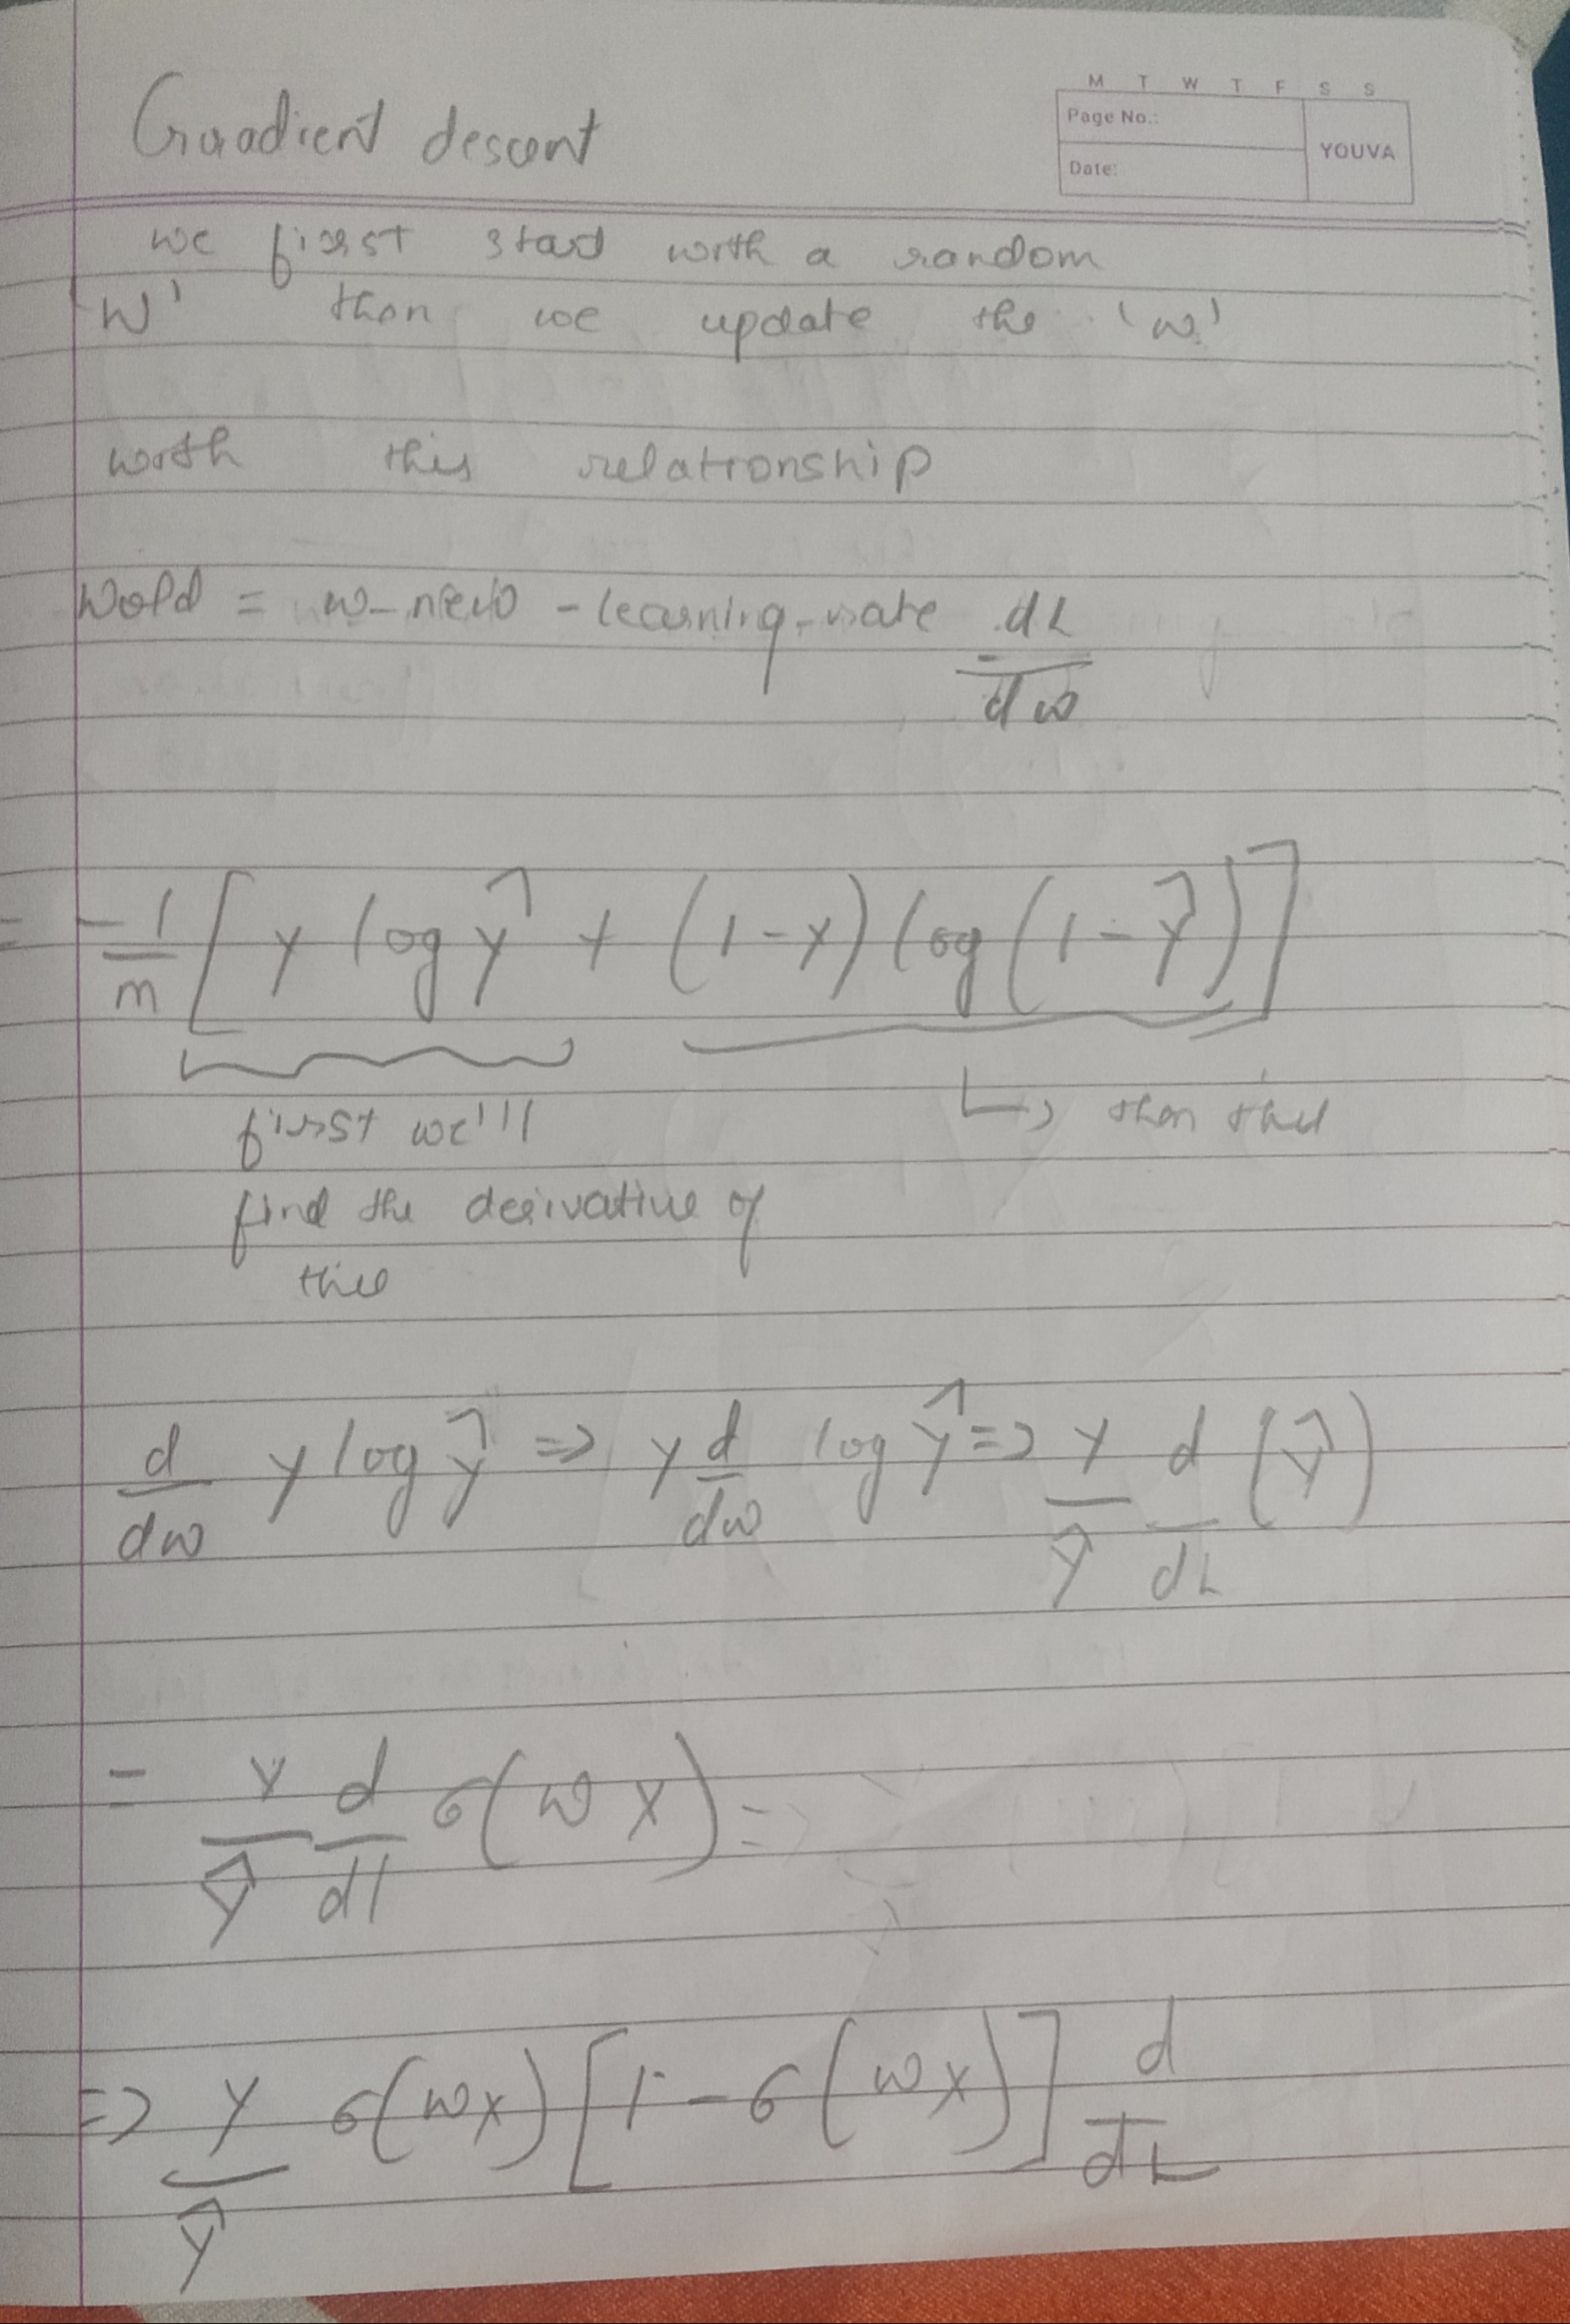 M T W T F S S
Page No.:
YOUVA
Date:
Gradient descent
we first start with a random
'W' then we update the 'w'
with this relationship
Wold = w_new - learning_rate dL/dw
= -1/m [y log ŷ + (1-y) log (1-ŷ)]
first we'll
find the derivative of
this
↳ then this
d/dw y log ŷ => y d/dw log ŷ => y/ŷ d/dL (ŷ)
= y/ŷ d/dl σ(wx) =>
=> y/ŷ σ(wx) [1 - σ(wx)] d/dL